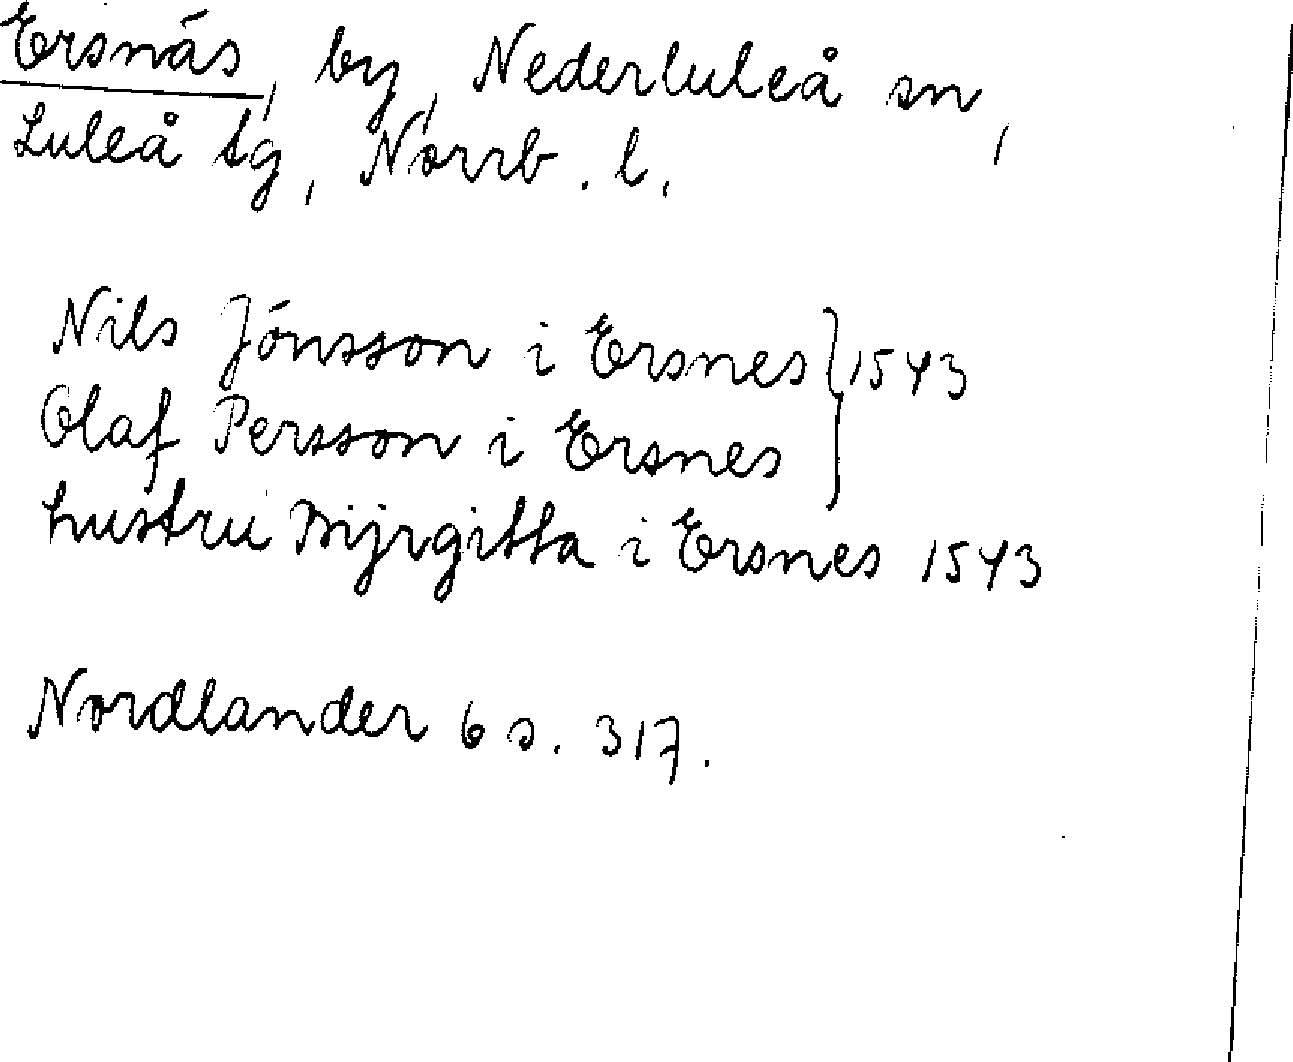 Ersnäs, by, Nederluleå sn,
Luleå tg, Norrb. l.
Nils Jönsson i Ersnes } 1543
Olaf Persson i Ersnes }
hustru Bijrgitta i Ersnes 1543
Nordlander 6 s. 317.